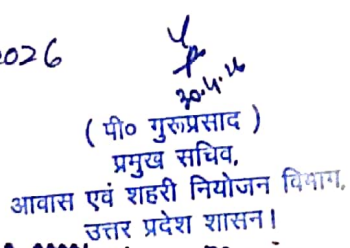 2026
30.4.26
( पी० गुरूप्रसाद )
प्रमुख सचिव,
आवास एवं शहरी नियोजन विभाग,
उत्तर प्रदेश शासन।